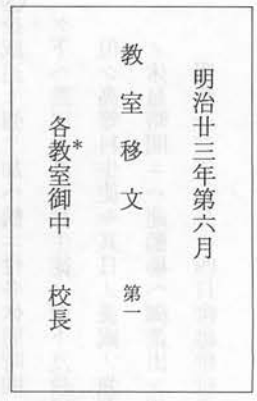 明治廿三年第六月
教室移文　第一
各教室御中　校長
*